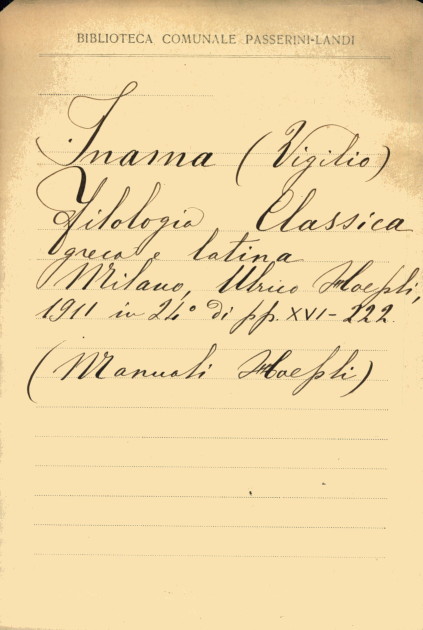 BIBLIOTECA COMUNALE PASSERINI-LANDI
Inama (Vigilio)
Filologia Classica
greca e latina
Milano, Ulrico Hoepli,
1911 in 24° di pp. XVI-222.
(Manuali Hoepli)